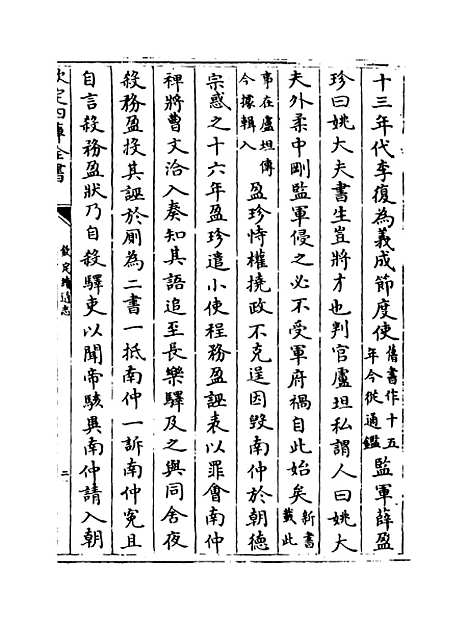 十三年代李復為義成節度使舊書作十五年今從通鑑監軍薛盈
珍曰姚大夫書生豈將才也判官盧坦私謂人曰姚大
夫外柔中剛監軍侵之必不受軍府禍自此始矣新書載此
事在盧坦傳今據輯入盈珍恃權撓政不克逞因毀南仲於朝德
宗惑之十六年盈珍遣小使程務盈誣表以罪會南仲
裨將曹文洽入奏知其語追至長樂驛及之與同舍夜
殺務盈投其誣於厠為二書一抵南仲一訴南仲冤且
自言殺務盈狀乃自殺驛吏以聞帝駭異南仲請入朝
欽定四庫全書
欽定續通志
二